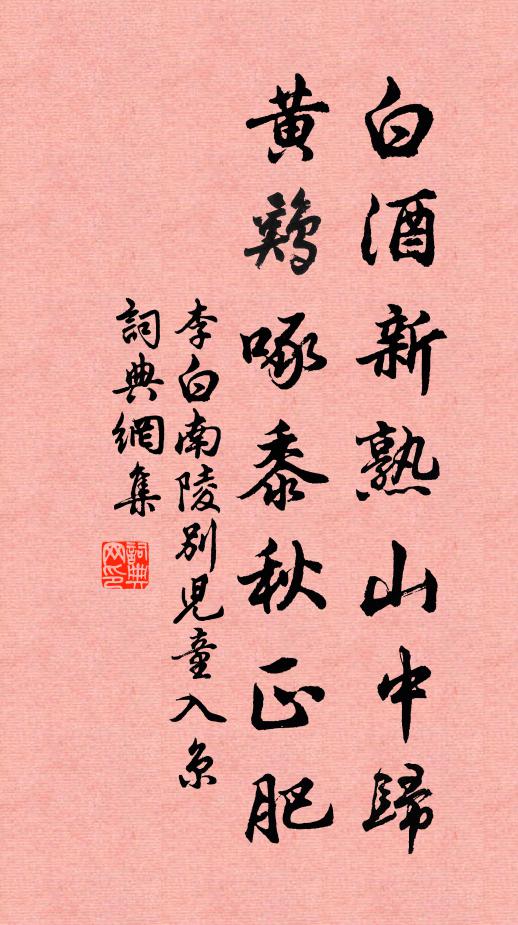 白酒新熟山中歸
黄鷄啄黍秋正肥
李白南陵別兒童入京
詞典網集
詞典網印